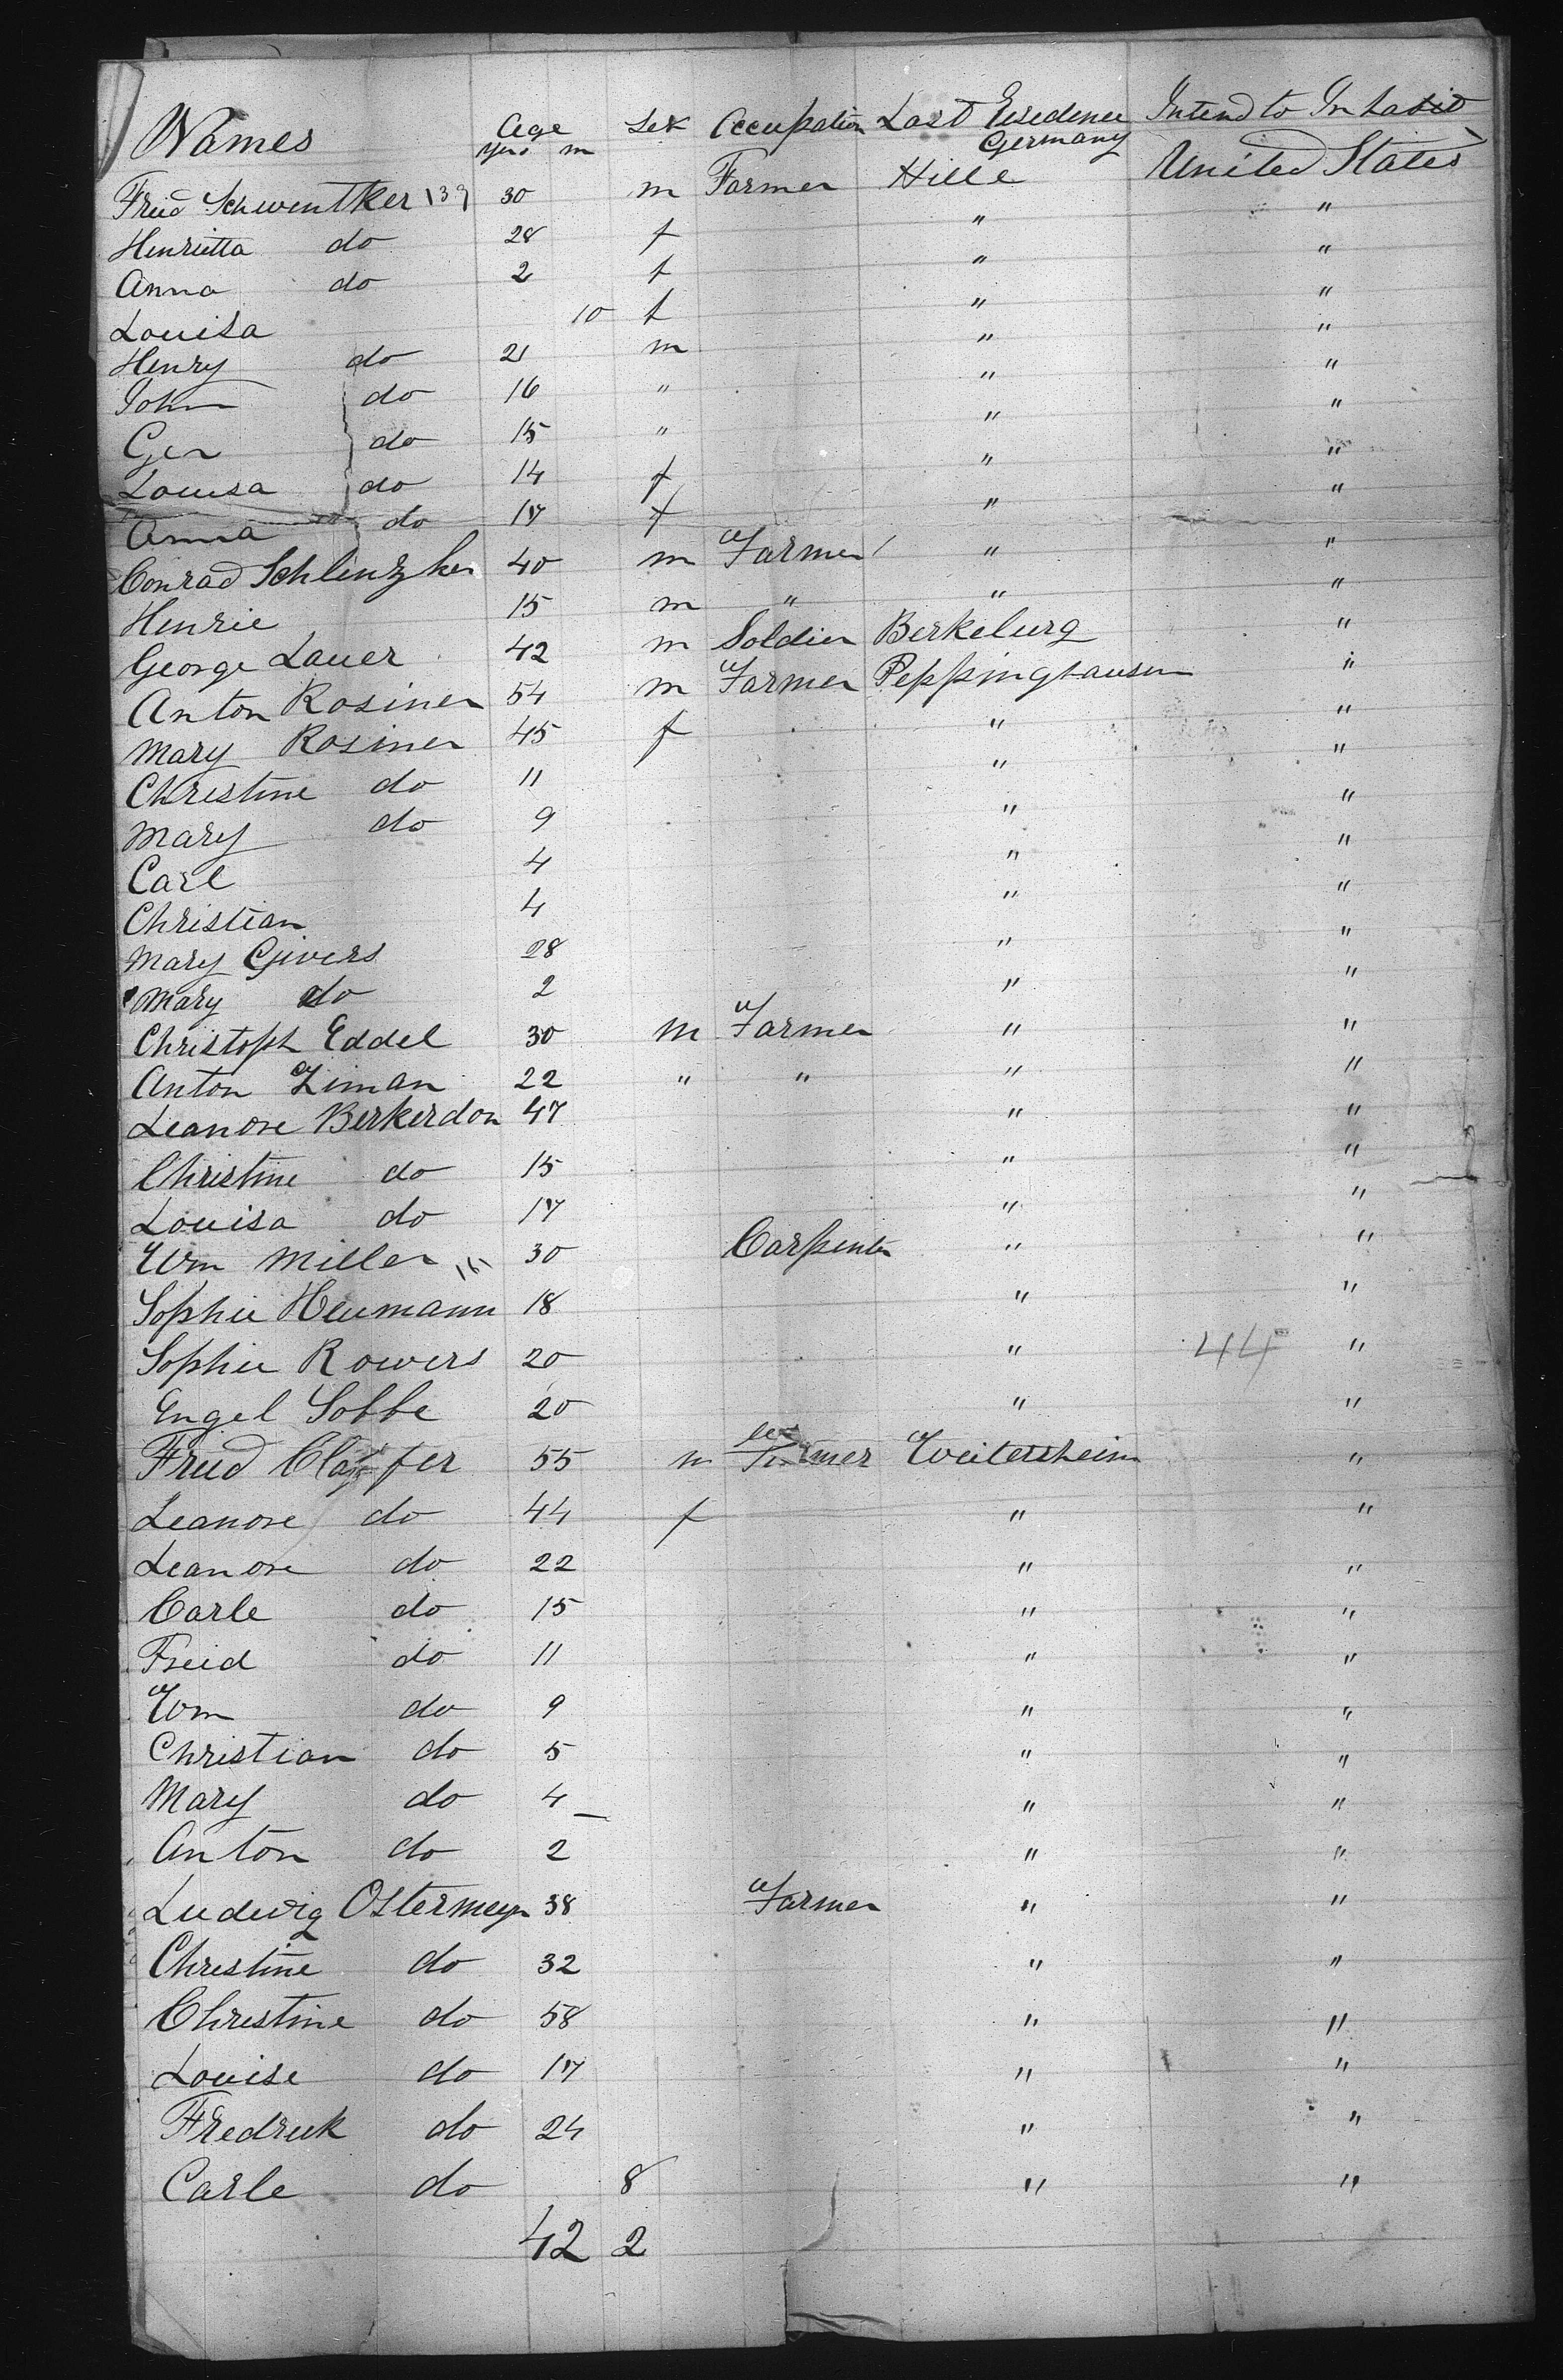 Names Age Sex Occupation Last Residence Intend to Inhabit
yrs m Germany
Fried Schwentker 139 30 m Farmer Hille United States
Henrietta do 28 f " "
Anna do 2 f " "
Louisa 10 f " "
Henry do 21 m " "
John do 16 " " "
Ger do 15 " " "
Louisa do 14 f " "
Anna do 17 f " "
Conrad 40 m Farmer " "
Henrie 15 m " " "
George Lauer 42 m Soldier Berkelurg "
Anton Rosiner 54 m Farmer Peppinghausen "
Mary Rosiner 45 f " "
Christine do 11 " "
Mary do 9 " "
Carl 4 " "
Christian 4 " "
Mary Givers 28 " "
Mary do 2 " "
Christoph Eddel 30 m Farmer " "
Anton Ziman 22 " " " "
Leanore Berkerdon 47 " "
Christine do 15 " "
Louisa do 17 " "
Wm Miller 161 30 Carpenter " "
Sophie Heumann 18 " "
Sophie Rowers 20 " 44 "
Engel Sobbe 20 " "
Fried 55 m Farmer Weitersheim "
Leanore do 44 f " "
Leanore do 22 " "
Carle do 15 " "
Fried do 11 " "
Wm do 9 " "
Christian do 5 " "
Mary do 4 " "
Anton do 2 " "
Ludwig Ostermeyr 38 Farmer " "
Christine do 32 " "
Christine do 58 " "
Louise do 17 " "
Fredrick do 24 " "
Carle do 8 " "
42 2